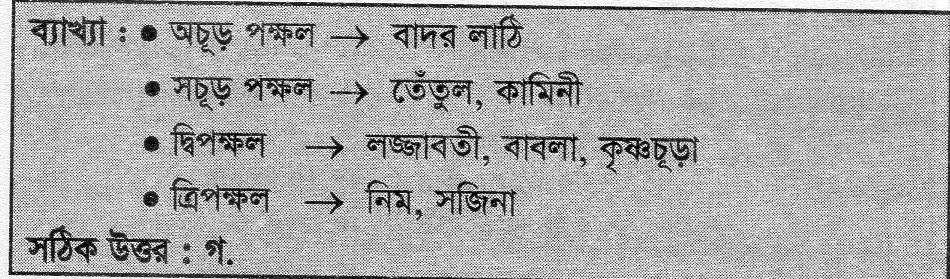 ব্যাখ্যা : ● অচূড় পক্ষল → বাদর লাঠি
● সচূড় পক্ষল → তেঁতুল, কামিনী
● দ্বিপক্ষল → লজ্জাবতী, বাবলা, কৃষ্ণচূড়া
● ত্রিপক্ষল → নিম, সজিনা
সঠিক উত্তর : গ.